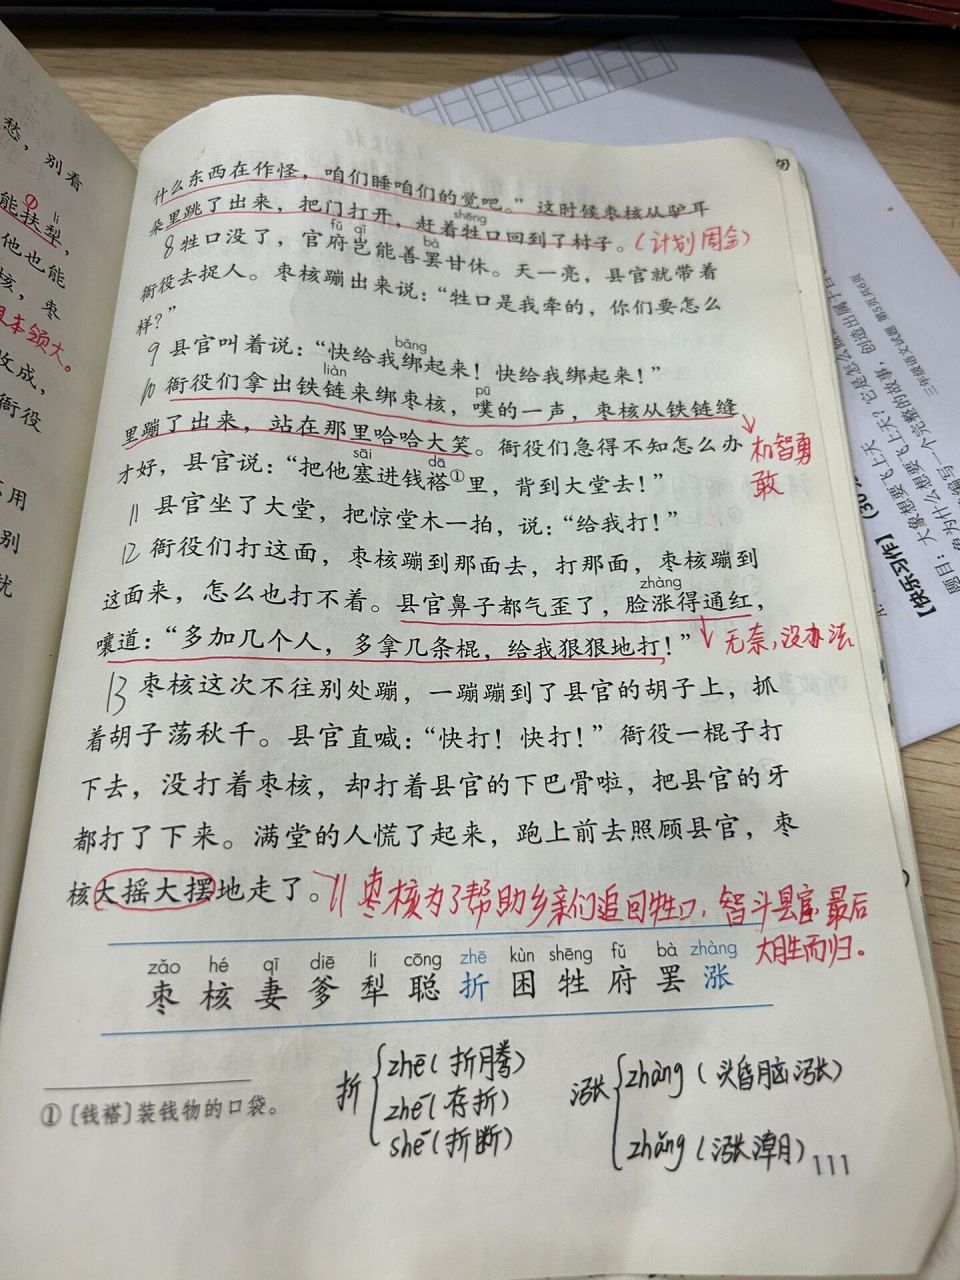 愁，别看
能扶犁，
lí
①
他也能
核，枣
本领大。
收成，
衙役
用
别
就
什么东西在作怪，咱们睡咱们的觉吧。”这时候枣核从驴耳
朵里跳了出来，把门打开，赶着牲口回到了村子。（计划周全）
shēng
8 牲口没了，官府岂能善罢甘休。天一亮，县官就带着
fǔ qǐ bà
衙役去捉人。枣核蹦出来说：“牲口是我牵的，你们要怎么
样？”
9 县官叫着说：“快给我绑起来！快给我绑起来！”
bǎng
10 衙役们拿出铁链来绑枣核，噗的一声，枣核从铁链缝
liàn pū
里蹦了出来，站在那里哈哈大笑。衙役们急得不知怎么办
机智勇
敢
才好，县官说：“把他塞进钱褡①里，背到大堂去！”
sāi dā
11 县官坐了大堂，把惊堂木一拍，说：“给我打！”
12 衙役们打这面，枣核蹦到那面去，打那面，枣核蹦到
这面来，怎么也打不着。县官鼻子都气歪了，脸涨得通红，
zhàng
嚷道：“多加几个人，多拿几条棍，给我狠狠地打！”
无奈，没办法
13 枣核这次不往别处蹦，一蹦蹦到了县官的胡子上，抓
着胡子荡秋千。县官直喊：“快打！快打！”衙役一棍子打
下去，没打着枣核，却打着县官的下巴骨啦，把县官的牙
都打了下来。满堂的人慌了起来，跑上前去照顾县官，枣
核大摇大摆地走了。
枣核为了帮助乡亲们追回牲口，智斗县官，最后
大胜而归。
zǎo hé qī diē lí cōng zhē kùn shēng fǔ bà zhàng
枣 核 妻 爹 犁 聪 折 困 牲 府 罢 涨
①〔钱褡〕装钱物的口袋。
折
zhē（折腾）
zhé（存折）
shé（折断）
涨
zhàng（头昏脑涨）
zhǎng（涨潮）
111
【快乐习作】（30
题目：大象想要飞上天
三年级语文试题 第5页共6页